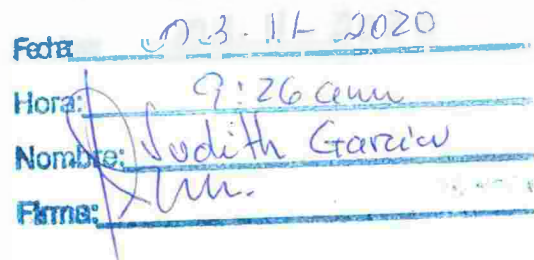 Fecha: 03-11-2020
Hora: 9:26 am
Nombre: Judith Garcia
Firma: